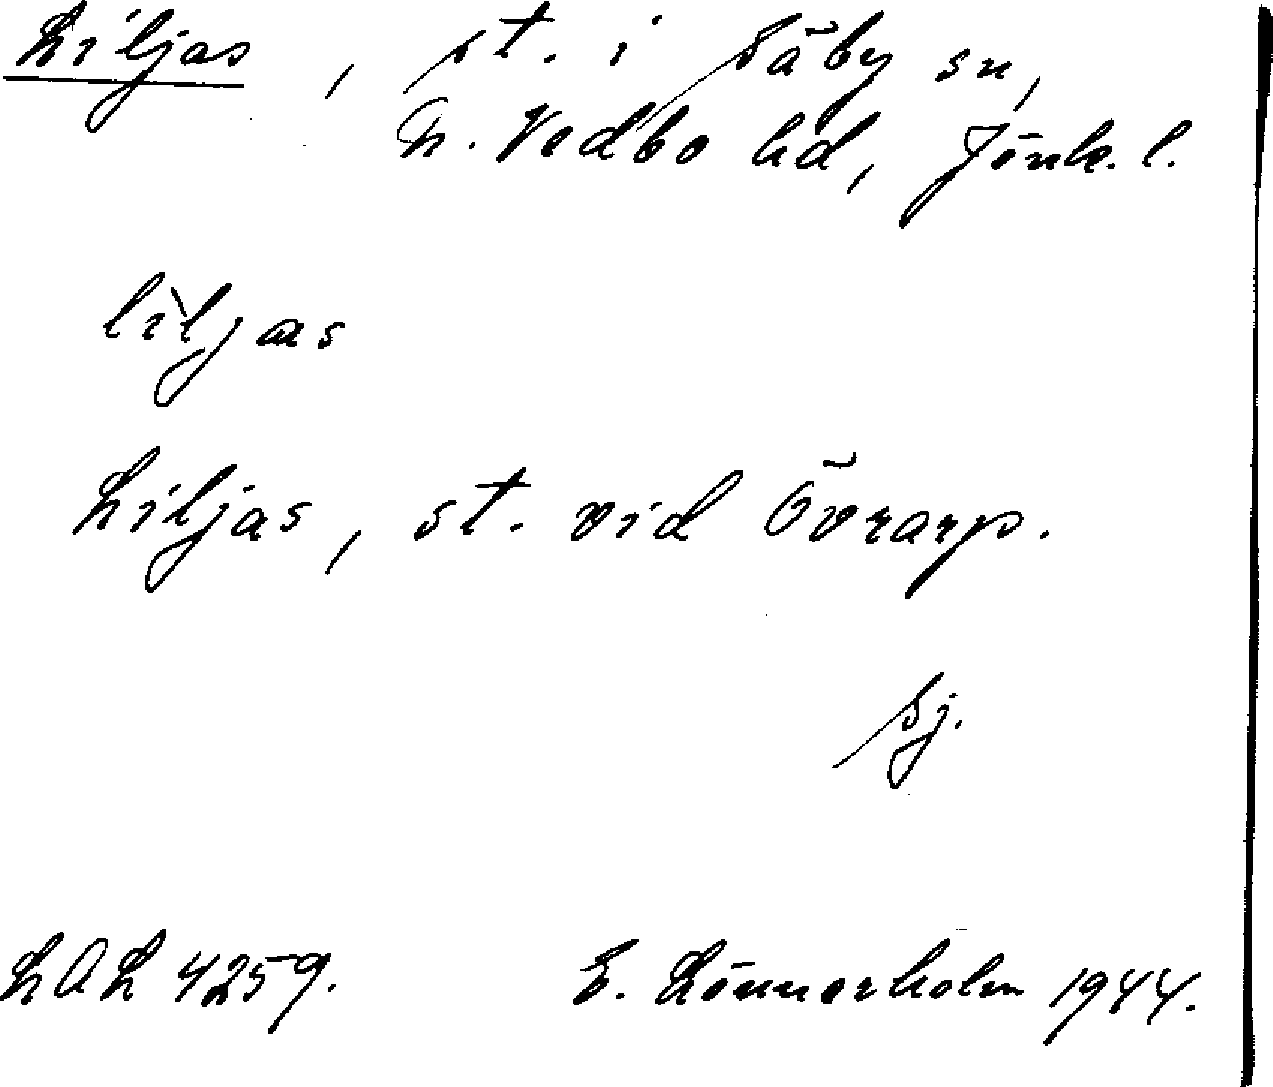 Liljas, st. i Säby sn,
N. Vedbo hd, Jönk. l.
lìljas
Liljas, st. vid Övrarp.
Sj.
LAL 4259. E. Lönnerholm 1944.